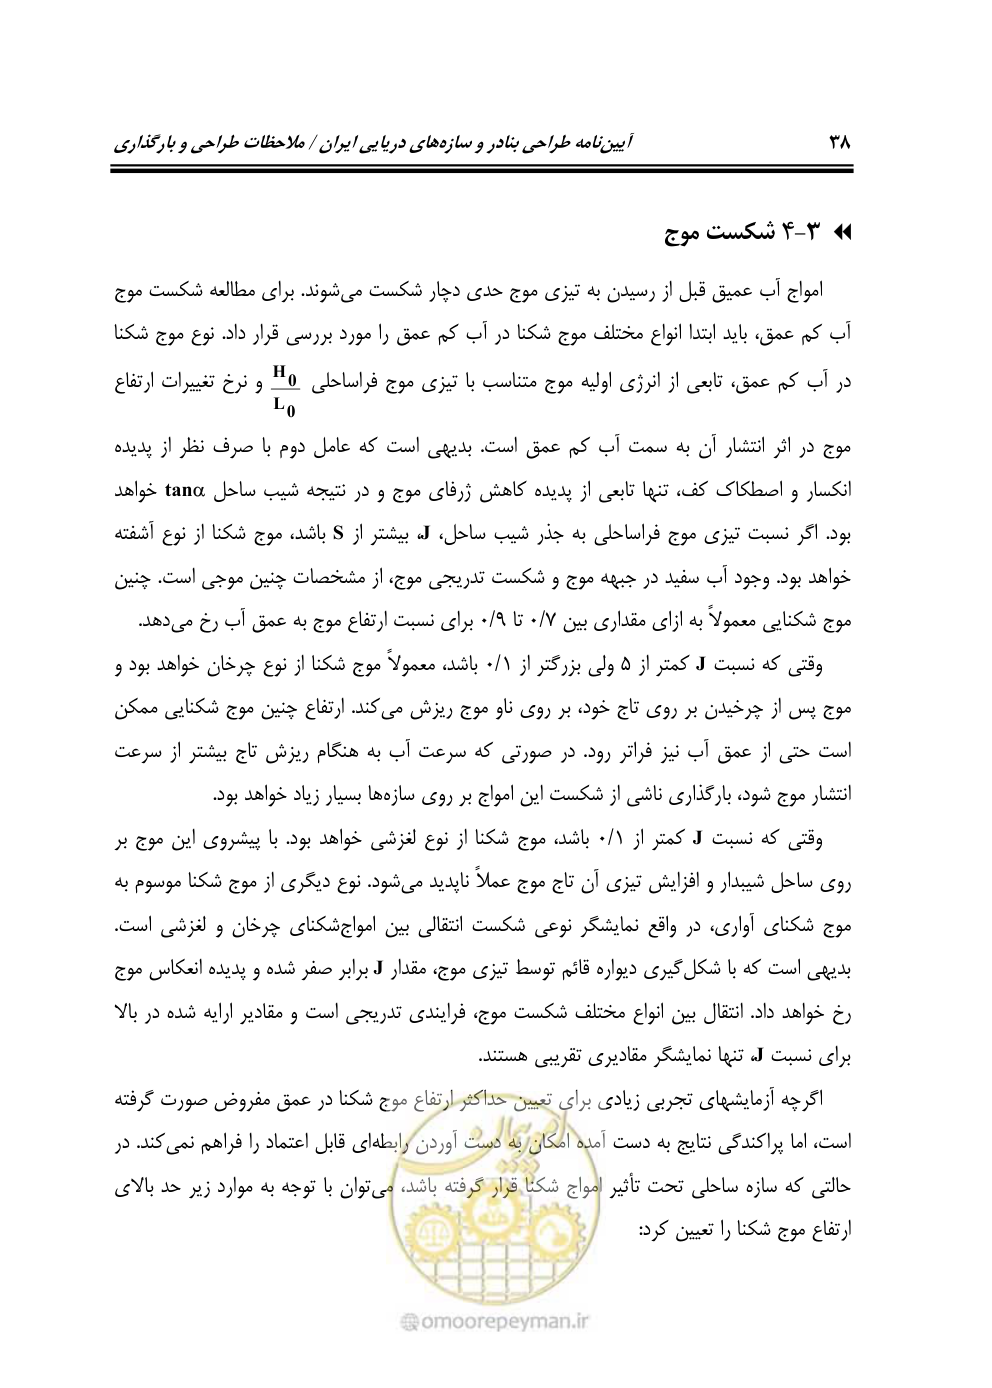 ۳۸ آیین‌نامه طراحی بنادر و سازه‌های دریایی ایران / ملاحظات طراحی و بارگذاری
۳-۴ شکست موج
امواج آب عمیق قبل از رسیدن به تیزی موج حدی دچار شکست می‌شوند. برای مطالعه شکست موج
آب کم عمق، باید ابتدا انواع مختلف موج شکنا در آب کم عمق را مورد بررسی قرار داد. نوع موج شکنا
در آب کم عمق، تابعی از انرژی اولیه موج متناسب با تیزی موج فراساحلی H0/L0 و نرخ تغییرات ارتفاع
موج در اثر انتشار آن به سمت آب کم عمق است. بدیهی است که عامل دوم با صرف نظر از پدیده
انکسار و اصطکاک کف، تنها تابعی از پدیده کاهش ژرفای موج و در نتیجه شیب ساحل tanα خواهد
بود. اگر نسبت تیزی موج فراساحلی به جذر شیب ساحل، J، بیشتر از S باشد، موج شکنا از نوع آشفته
خواهد بود. وجود آب سفید در جبهه موج و شکست تدریجی موج، از مشخصات چنین موجی است. چنین
موج شکنایی معمولاً به ازای مقداری بین ۰/۷ تا ۰/۹ برای نسبت ارتفاع موج به عمق آب رخ می‌دهد.
وقتی که نسبت J کمتر از ۵ ولی بزرگتر از ۰/۱ باشد، معمولاً موج شکنا از نوع چرخان خواهد بود و
موج پس از چرخیدن بر روی تاج خود، بر روی ناو موج ریزش می‌کند. ارتفاع چنین موج شکنایی ممکن
است حتی از عمق آب نیز فراتر رود. در صورتی که سرعت آب به هنگام ریزش تاج بیشتر از سرعت
انتشار موج شود، بارگذاری ناشی از شکست این امواج بر روی سازه‌ها بسیار زیاد خواهد بود.
وقتی که نسبت J کمتر از ۰/۱ باشد، موج شکنا از نوع لغزشی خواهد بود. با پیشروی این موج بر
روی ساحل شیبدار و افزایش تیزی آن تاج موج عملاً ناپدید می‌شود. نوع دیگری از موج شکنا موسوم به
موج شکنای آواری، در واقع نمایشگر نوعی شکست انتقالی بین امواج‌شکنای چرخان و لغزشی است.
بدیهی است که با شکل‌گیری دیواره قائم توسط تیزی موج، مقدار J برابر صفر شده و پدیده انعکاس موج
رخ خواهد داد. انتقال بین انواع مختلف شکست موج، فرایندی تدریجی است و مقادیر ارایه شده در بالا
برای نسبت J، تنها نمایشگر مقادیری تقریبی هستند.
اگرچه آزمایشهای تجربی زیادی برای تعیین حداکثر ارتفاع موج شکنا در عمق مفروض صورت گرفته
است، اما پراکندگی نتایج به دست آمده امکان به دست آوردن رابطه‌ای قابل اعتماد را فراهم نمی‌کند. در
حالتی که سازه ساحلی تحت تأثیر امواج شکنا قرار گرفته باشد، می‌توان با توجه به موارد زیر حد بالای
ارتفاع موج شکنا را تعیین کرد:
امور پیمان
@omoorepeyman.ir